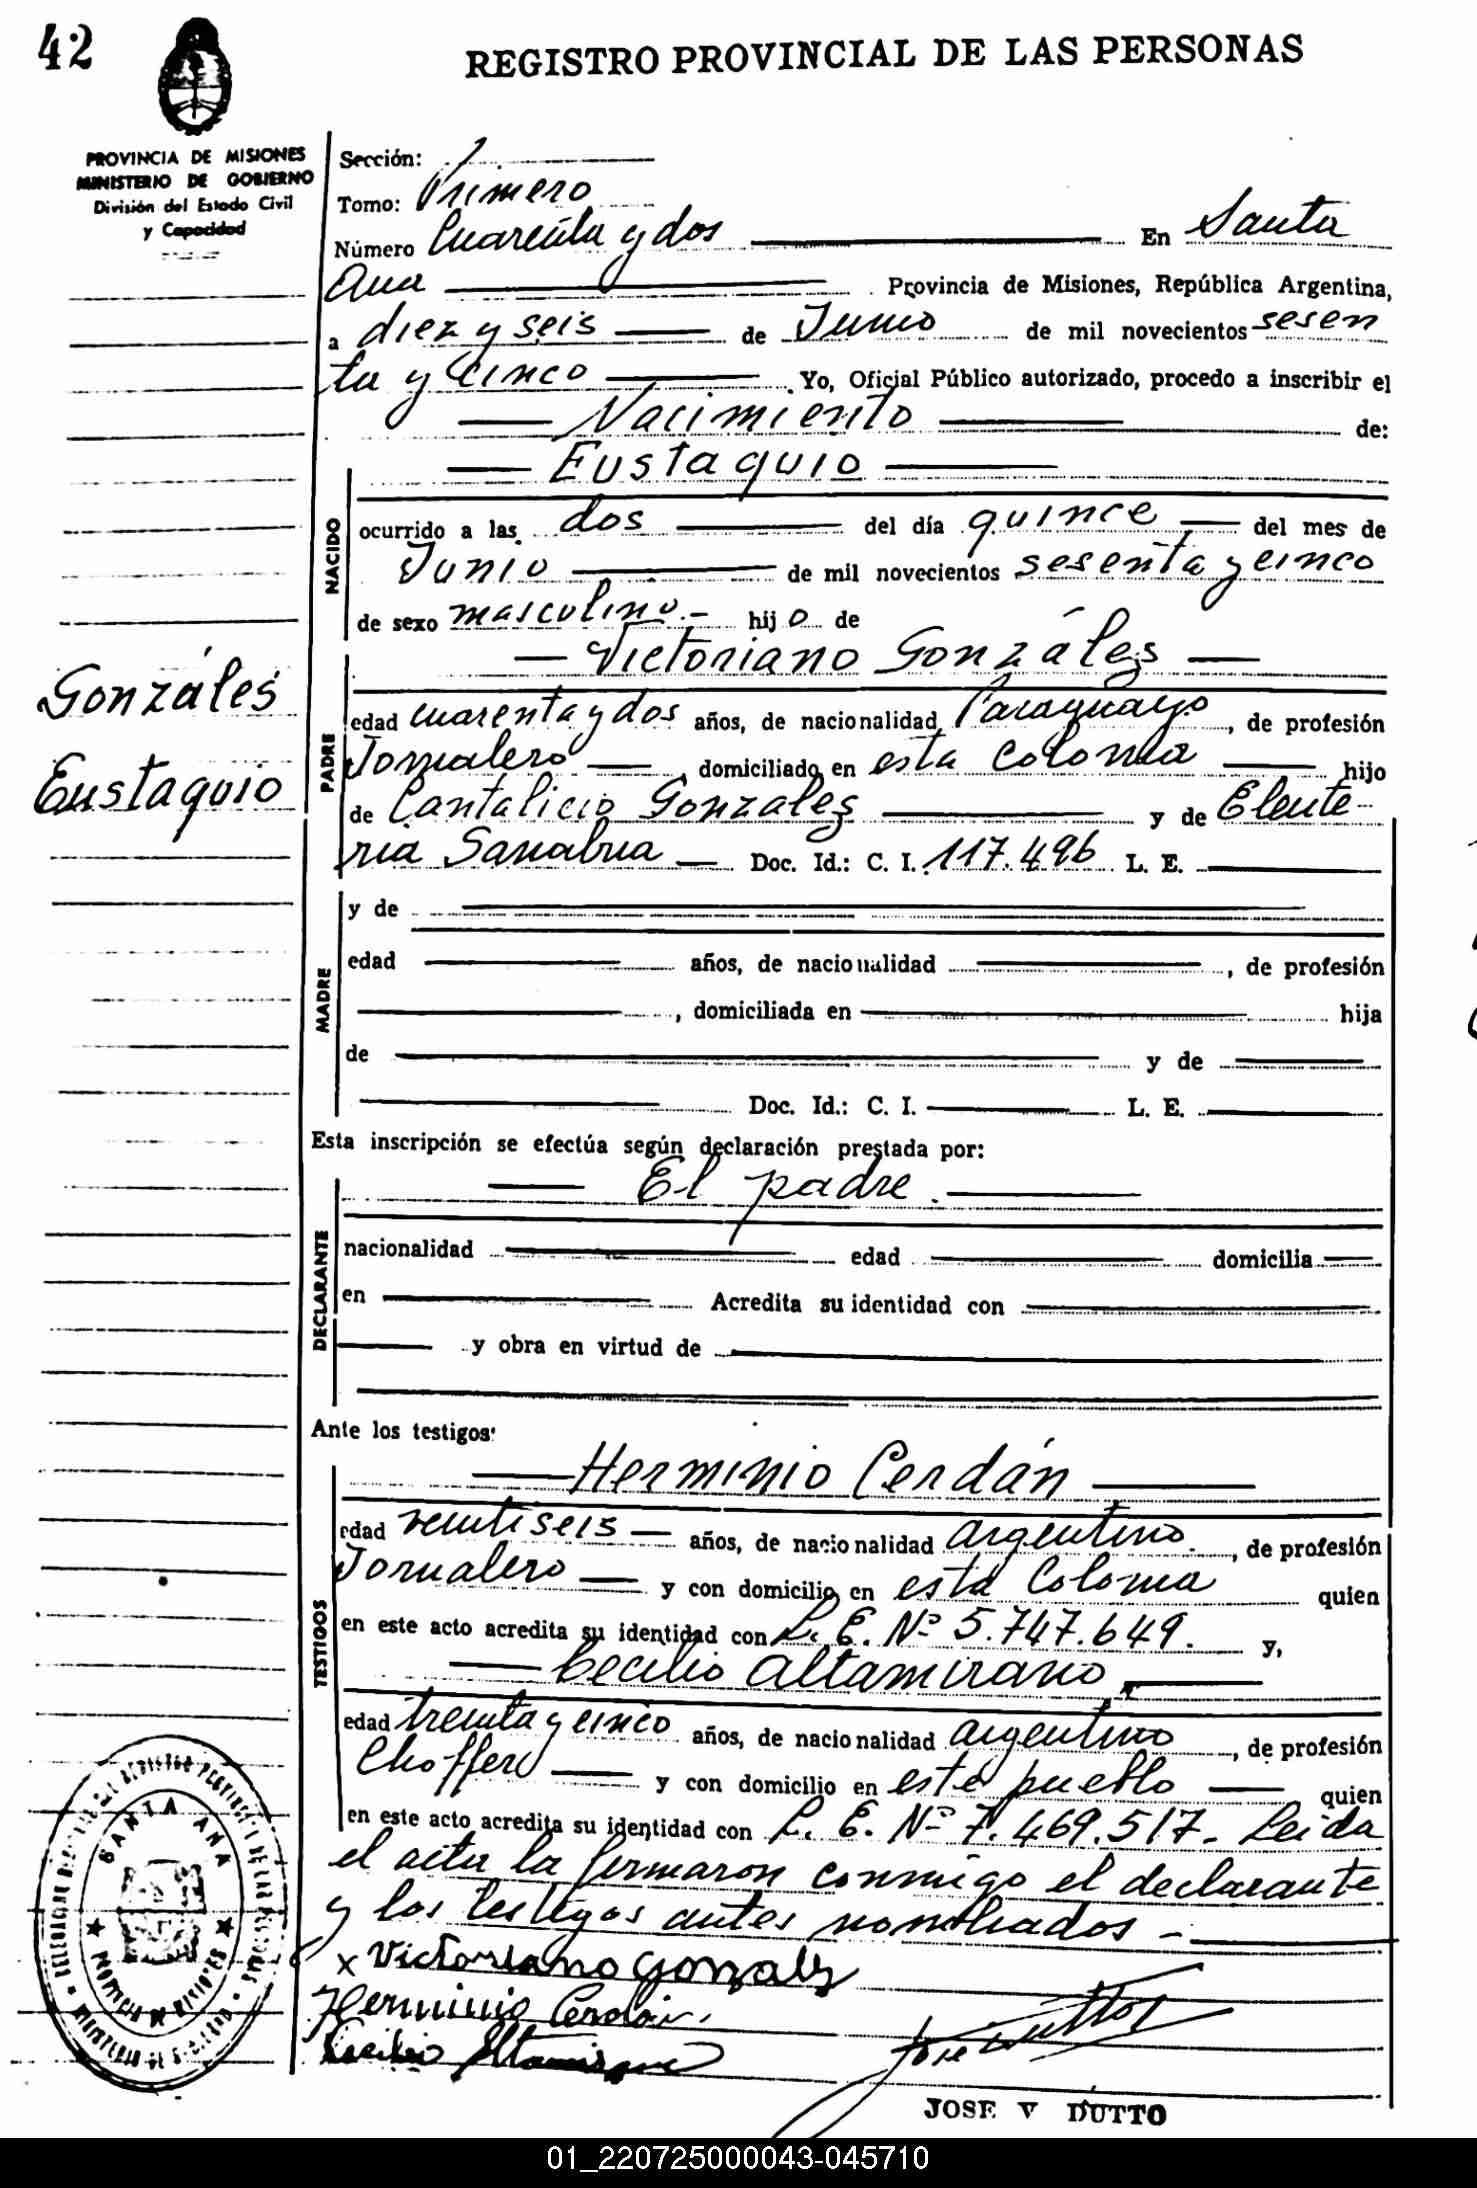 42
REGISTRO PROVINCIAL DE LAS PERSONAS
PROVINCIA DE MISIONES
MINISTERIO DE GOBIERNO
División del Estado Civil
y Capacidad
Sección: 1
Tomo: Primero
Número Cuarenta y dos En Santa
Ana Provincia de Misiones, República Argentina,
a diez y seis de Junio de mil novecientos sesen
ta y cinco Yo, Oficial Público autorizado, procedo a inscribir el
Nacimiento de:
Eustaquio
NACIDO
ocurrido a las dos del día quince del mes de
Junio de mil novecientos sesenta y cinco
de sexo masculino.- hijo de
Victoriano Gonzáles
Gonzáles
Eustaquio
PADRE
edad cuarenta y dos años, de nacionalidad Paraguayo, de profesión
Jornalero, domiciliado en esta colonia hijo
de Cantalicio Gonzales y de Eleute
ria Sanabria Doc. Id.: C. I. 117.496 L. E.
MADRE
y de
edad años, de nacionalidad , de profesión
, domiciliada en hija
de y de
Doc. Id.: C. I. L. E.
Esta inscripción se efectúa según declaración prestada por:
El padre.
DECLARANTE
nacionalidad edad domicilia
en Acredita su identidad con
y obra en virtud de
Ante los testigos:
Herminio Cerdán
TESTIGOS
edad veintiseis años, de nacionalidad argentino., de profesión
Jornalero y con domicilio en esta Colonia quien
en este acto acredita su identidad con L. E. Nº 5.747.649. y,
Cecilio Altamirano
edad treinta y cinco años, de nacionalidad argentino, de profesión
Choffer y con domicilio en este pueblo quien
en este acto acredita su identidad con L. E. Nº 7.469.517. Leída
el acta la firmaron conmigo el declarante
y los testigos antes nombrados -
x Victoriano Gonzalez
Herminio Cerdán
Cecilio Altamirano
José Dutto
JOSE V DUTTO
SANTA ANA
PROVINCIA DE MISIONES
01_220725000043-045710